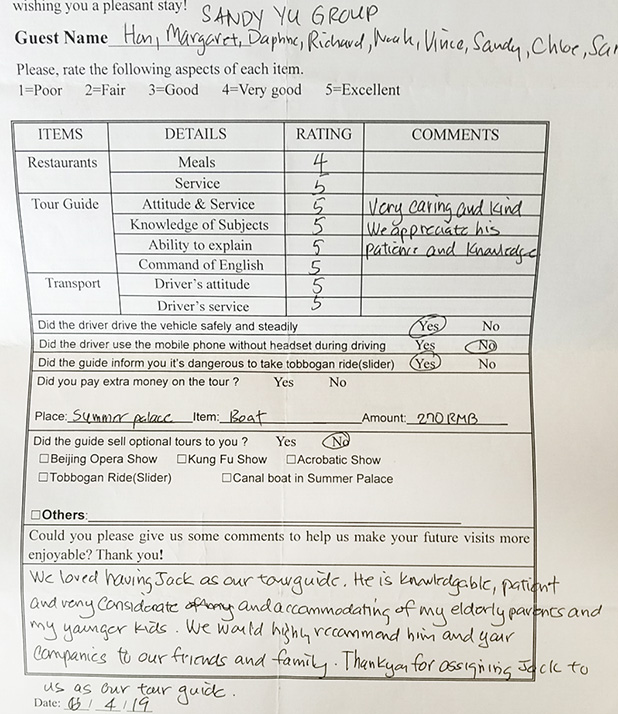 wishing you a pleasant stay!
SANDY YU GROUP
Guest Name Hon, Margaret, Daphne, Richard, Noah, Vince, Sandy, Chloe, Sar
Please, rate the following aspects of each item.
1=Poor 2=Fair 3=Good 4=Very good 5=Excellent
ITEMS DETAILS RATING COMMENTS
Restaurants Meals 4
Service 5
Tour Guide Attitude & Service 5 Very caring and kind
Knowledge of Subjects 5 We appreciate his
Ability to explain 5 patience and knowledge
Command of English 5
Transport Driver's attitude 5
Driver's service 5
Did the driver drive the vehicle safely and steadily Yes No
Did the driver use the mobile phone without headset during driving Yes No
Did the guide inform you it's dangerous to take tobbogan ride(slider) Yes No
Did you pay extra money on the tour ? Yes No
Place: Summer palace Item: Boat Amount: 270 RMB
Did the guide sell optional tours to you ? Yes No
☐Beijing Opera Show ☐Kung Fu Show ☐Acrobatic Show
☐Tobbogan Ride(Slider) ☐Canal boat in Summer Palace
☐Others:
Could you please give us some comments to help us make your future visits more
enjoyable? Thank you!
We loved having Jack as our tourguide. He is knowledgable, patient
and very considerate and accommodating of my elderly parents and
my younger kids. We would highly recommend him and your
companies to our friends and family. Thankyou for assigning Jack to
us as our tour guide.
Date: / 4 / 19